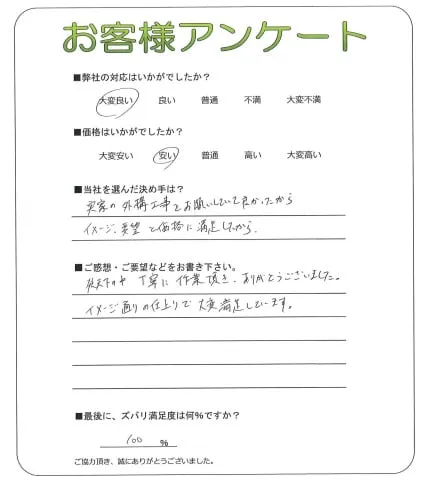 お客様アンケート
■弊社の対応はいかがでしたか？
大変良い 良い 普通 不満 大変不満
■価格はいかがでしたか？
大変安い 安い 普通 高い 大変高い
■当社を選んだ決め手は？
実家の外構工事をお願いしていて良かったから
イメージ、要望と価格に満足したから。
■ご感想・ご要望などをお書き下さい。
炎天下の中 丁寧に作業頂き、ありがとうございました。
イメージ通りの仕上りで大変満足しています。
■最後に、ズバリ満足度は何％ですか？
100 ％
ご協力頂き、誠にありがとうございました。